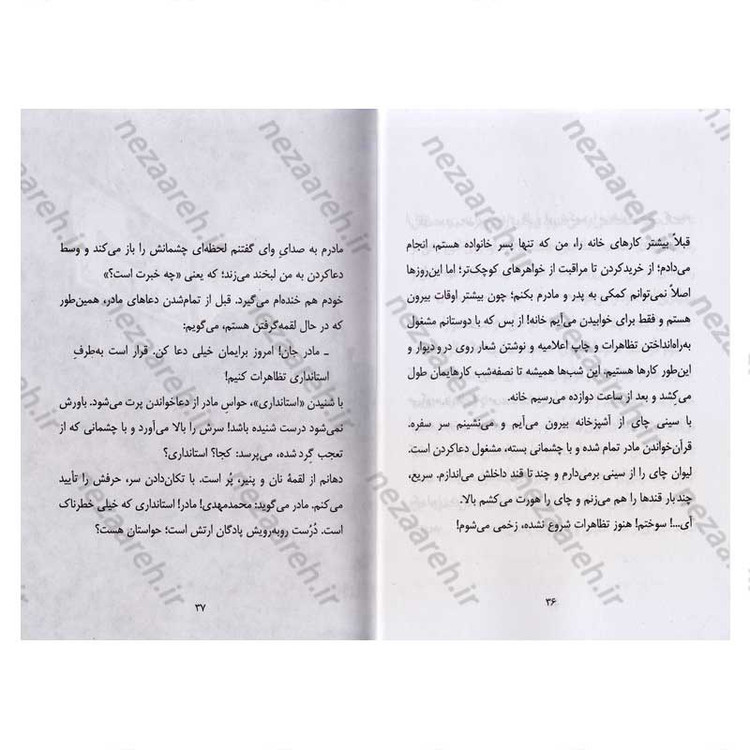 قبلاً بیشتر کارهای خانه را، من که تنها پسر خانواده هستم، انجام
می‌دادم؛ از خریدکردن تا مراقبت از خواهرهای کوچک‌تر؛ اما این‌روزها
اصلاً نمی‌توانم کمکی به پدر و مادرم بکنم؛ چون بیشتر اوقات بیرون
هستم و فقط برای خوابیدن می‌آیم خانه! از بس که با دوستانم مشغول
به‌راه‌انداختن تظاهرات و چاپ اعلامیه و نوشتن شعار روی در و دیوار و
این‌طور کارها هستیم. این شب‌ها همیشه تا نصفه‌شب کارهایمان طول
می‌کِشد و بعد از ساعت دوازده می‌رسیم خانه.
با سینی چای از آشپزخانه بیرون می‌آیم و می‌نشینم سر سفره.
قرآن‌خواندن مادر تمام شده و با چشمانی بسته، مشغول دعاکردن است.
لیوان چای را از سینی برمی‌دارم و چند تا قند داخلش می‌اندازم. سریع،
چند بار قندها را هم می‌زنم و چای را هورت می‌کشم بالا.
آی...! سوختم! هنوز تظاهرات شروع نشده، زخمی می‌شوم!
۳۶
مادرم به صدایِ وای گفتنم لحظه‌ای چشمانش را باز می‌کند و وسط
دعاکردن به من لبخند می‌زند؛ که یعنی «چه خبرت است؟»
خودم هم خنده‌ام می‌گیرد. قبل از تمام‌شدن دعاهای مادر، همین‌طور
که در حال لقمه‌گرفتن هستم، می‌گویم:
ـ مادر جان! امروز برایمان خیلی دعا کن. قرار است به‌طرفِ
استانداری تظاهرات کنیم!
با شنیدن «استانداری»، حواسِ مادر از دعاخواندن پرت می‌شود. باورش
نمی‌شود درست شنیده باشد! سرش را بالا می‌آورد و با چشمانی که از
تعجب گِرد شده، می‌پرسد: کجا؟ استانداری؟
دهانم از لقمهٔ نان و پنیر، پُر است. با تکان‌دادن سر، حرفش را تأیید
می‌کنم. مادر می‌گوید: محمدمهدی! مادر! استانداری که خیلی خطرناک
است. دُرُست روبه‌رویش پادگان ارتش است؛ حواستان هست؟
۳۷
nezaareh.ir